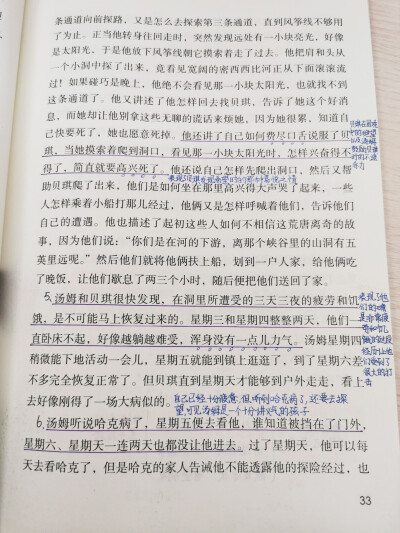 条通道向前探路，又是怎么去探索第三条通道，直到风筝线不够用
了为止。正当他转身往回走时，突然发现远处有一小块亮光，好像
是太阳光，于是他放下风筝线朝它摸索着走了过去。他把肩和头从
一个小洞中探了出来，竟看见宽阔的密西西比河正从下面滚滚流
过！如果碰巧是晚上，他绝不会看见那一小块太阳光，也就找不到
这条通道了。他又讲述了他怎样回去找贝琪，告诉了她这个好消
息，而她却让他别拿这些无聊的谎话来烦她，因为她很累，知道自
己快要死了，她也愿意死掉。他还讲了自己如何费尽口舌说服了贝
琪，当她摸索着爬到洞口，看见那一小块太阳光时，怎样兴奋得不
得了，简直就要高兴死了。他还说自己怎样先爬出洞口，然后又帮
助贝琪爬了出来，他们是如何坐在那里高兴得大声哭了起来，一些
人怎样乘着小船打那儿经过，他俩又是怎样呼喊着他们，告诉他们
自己的遭遇。他也描述了起初这些人如何不相信这荒唐离奇的故
事，因为他们说：“你们是在河的下游，离那个峡谷里的山洞有五
英里远呢。”然后他们就将他俩扶上船，划到一户人家，给他俩吃
了晚饭，让他们歇息了两三个小时，随后便把他们送回了家。
5.汤姆和贝琪很快发现，在洞里所遭受的三天三夜的疲劳和饥
饿，是不可能马上恢复过来的。星期三和星期四整整两天，他们一
直卧床不起，好像越躺越难受，浑身没有一点儿力气。汤姆星期四
稍微能下地活动一会儿，星期五就能到镇上逛逛了，到了星期六差
不多完全恢复正常了。但贝琪直到星期天才能够到户外走走，看上
去好像刚得了一场大病似的。
自己已经十分疲惫，但听到哈克病了，还要去探
望，可见汤姆是一个十分讲义气的孩子
6.汤姆听说哈克病了，星期五便去看他，谁知道被挡在了门外，
星期六、星期天一连两天也都没让他进去。过了星期天，他可以每
天去看哈克了，但是哈克的家人告诫他不能透露他的探险经过，也
33